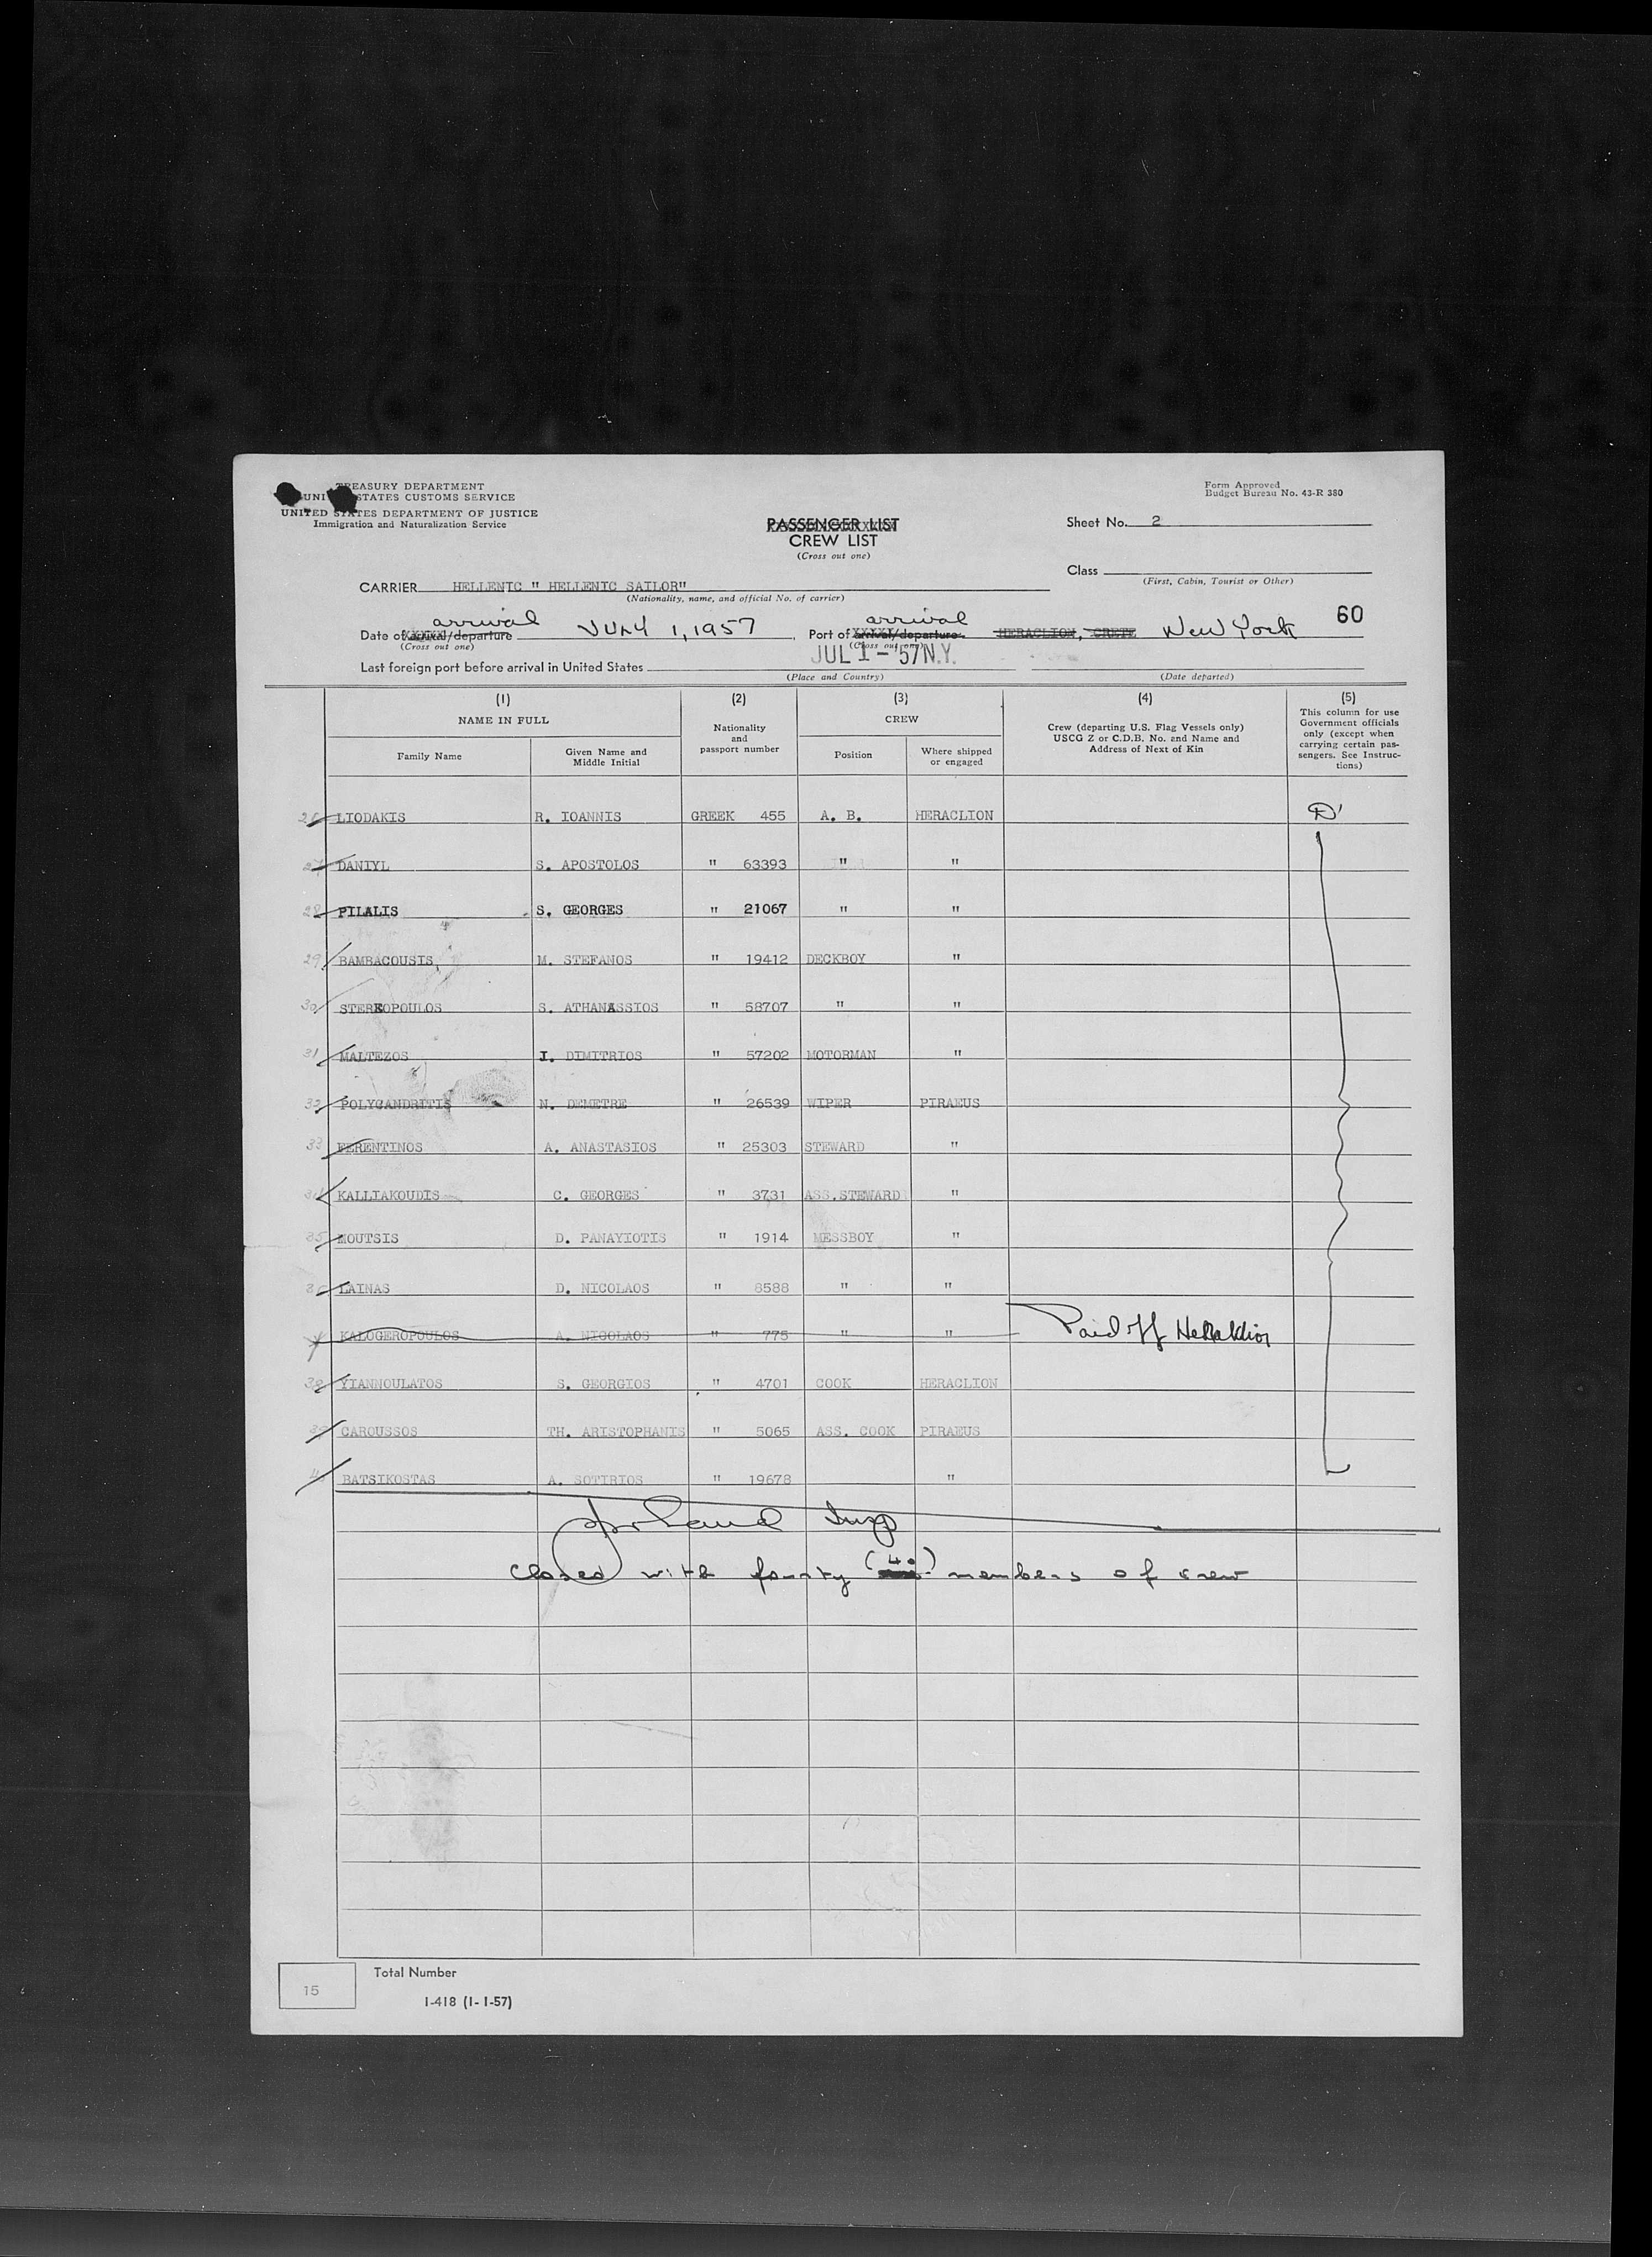 TREASURY DEPARTMENT
UNITED STATES CUSTOMS SERVICE
UNITED STATES DEPARTMENT OF JUSTICE
Immigration and Naturalization Service
Form Approved
Budget Bureau No. 43-R 380
PASSENGER LIST
CREW LIST
(Cross out one)
Sheet No. 2
Class
(First, Cabin, Tourist or Other)
CARRIER HELLENIC " HELLENIC SAILOR"
(Nationality, name, and official No. of carrier)
arrival arrival 60
Date of arrival/departure JULY 1, 1957 Port of arrival/departure HERACLION, CRETE New York
(Cross out one) (Cross out one)
JUL 1 - '57 N.Y.
Last foreign port before arrival in United States
(Place and Country) (Date departed)
(1) (2) (3) (4) (5)
NAME IN FULL Nationality and passport number CREW Crew (departing U.S. Flag Vessels only) USCG Z or C.D.B. No. and Name and Address of Next of Kin This column for use Government officials only (except when carrying certain passengers. See Instructions)
Family Name Given Name and Middle Initial Position Where shipped or engaged
26 LIODAKIS R. IOANNIS GREEK 455 A. B. HERACLION D'
27 DANIYL S. APOSTOLOS " 63393 " "
28 PILALIS S. GEORGES " 21067 " "
29 BAMBACOUSIS, M. STEFANOS " 19412 DECKBOY "
30 STEREOPOULOS S. ATHANASSIOS " 58707 " "
31 MALTEZOS I. DIMITRIOS " 57202 MOTORMAN "
32 POLYCANDRITIS N. DEMETRE " 26539 WIPER PIRAEUS
33 FERENTINOS A. ANASTASIOS " 25303 STEWARD "
34 KALLIAKOUDIS C. GEORGES " 3731 ASS.STEWARD "
35 MOUTSIS D. PANAYIOTIS " 1914 MESSBOY "
36 LAINAS D. NICOLAOS " 8588 " "
KALOGEROPOULOS A. NICOLAOS " 775 " " Paid off Heraklion
38 YIANNOULATOS S. GEORGIOS " 4701 COOK HERACLION
39 CAROUSSOS TH. ARISTOPHANIS " 5065 ASS. COOK PIRAEUS
BATSIKOSTAS A. SOTIRIOS " 19678 "
Insp
Closed with fourty (40) members of crew
15
Total Number
I-418 (1-1-57)